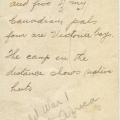 and five of my
Canadian pals
four are Victoria boys.
The camp in the
distance shows native
huts
W War I
Africa